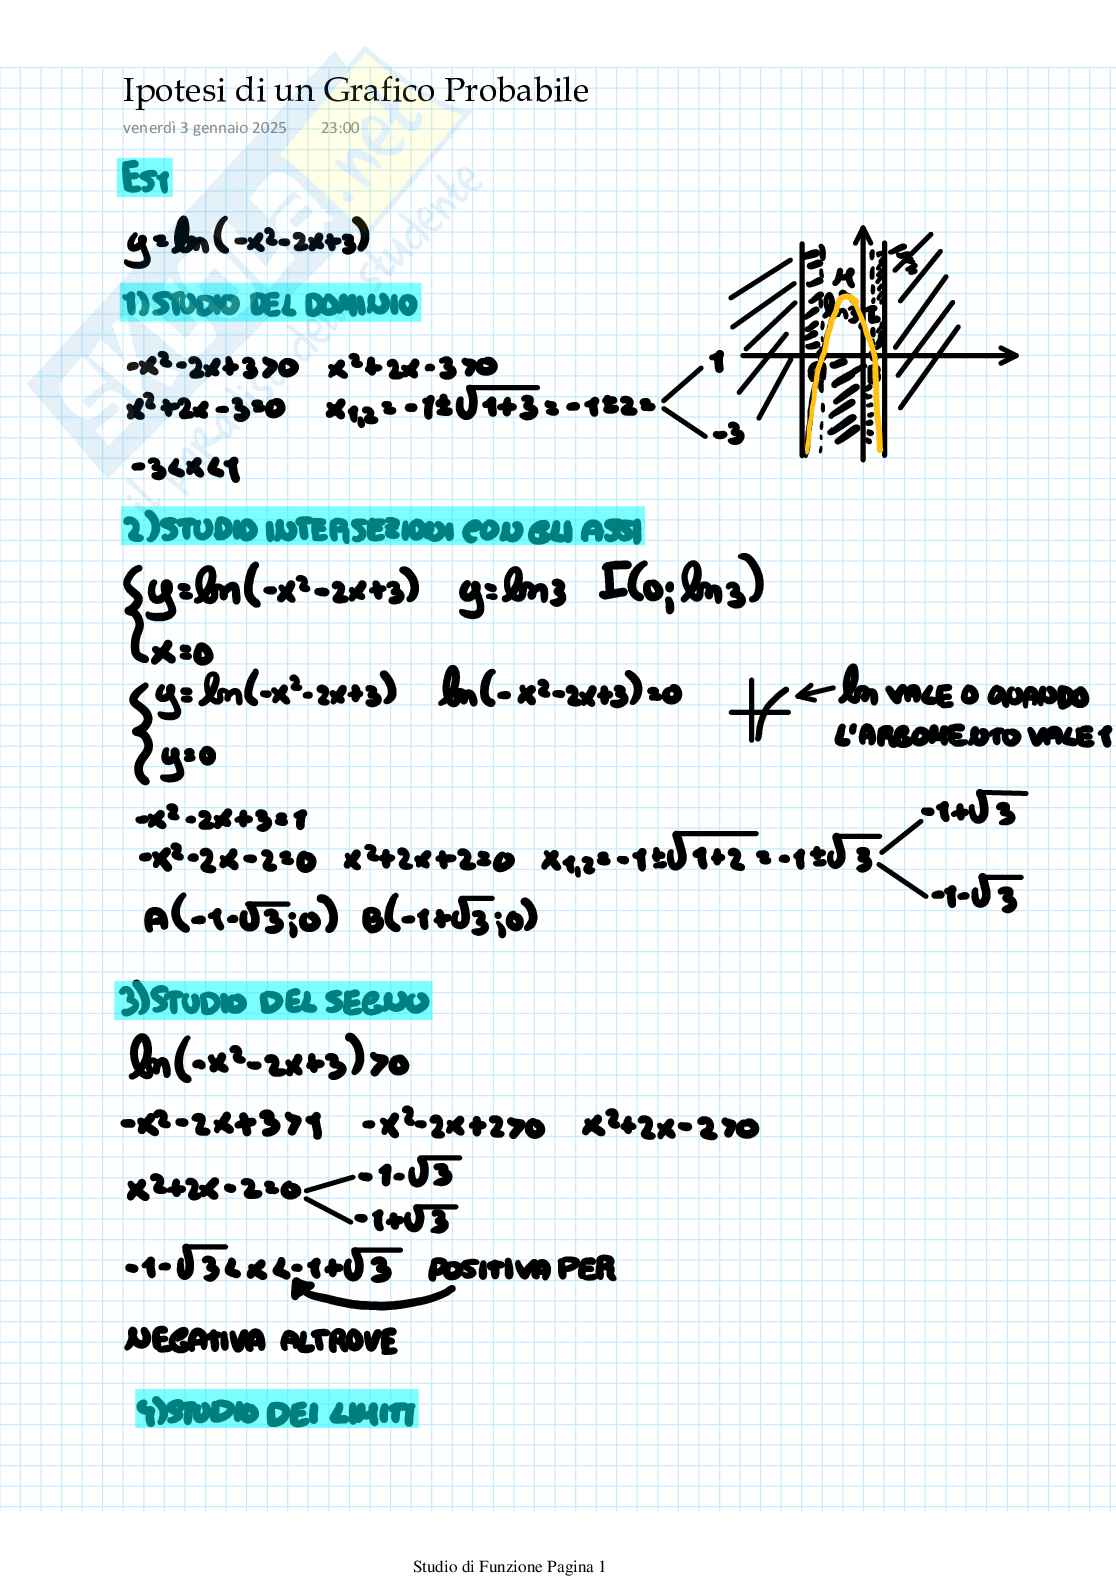 Ipotesi di un Grafico Probabile
venerdì 3 gennaio 2025 23:00
ES1
y=ln(-x²-2x+3)
1)STUDIO DEL DOMINIO
-x²-2x+3>0 x²+2x-3>0
x²+2x-3=0 x₁,₂=-1±√1+3=-1±2= 1
-3
-3<x<1
2)STUDIO INTERSEZIONI CON GLI ASSI
y=ln(-x²-2x+3) y=ln3 I(0;ln3)
x=0
y=ln(-x²-2x+3) ln(-x²-2x+3)=0 ln VALE 0 QUANDO
L'ARGOMENTO VALE 1
y=0
-x²-2x+3=1
-x²-2x-2=0 x²+2x+2=0 x₁,₂=-1±√1+2=-1±√3 -1+√3
-1-√3
A(-1-√3;0) B(-1+√3;0)
3)STUDIO DEL SEGNO
ln(-x²-2x+3)>0
-x²-2x+3>1 -x²-2x+2>0 x²+2x-2>0
x²+2x-2=0 -1-√3
-1+√3
-1-√3<x<-1+√3 POSITIVA PER
NEGATIVA ALTROVE
4)STUDIO DEI LIMITI
Studio di Funzione Pagina 1
SKUOLA.net